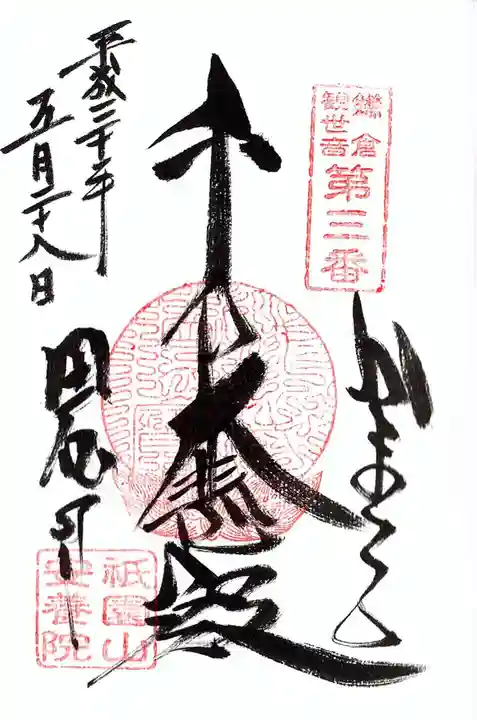 鎌倉
観世音
第三番
かまくら
千手大悲殿
平成三十年
五月二十八日
田代寺
祇園山
安養院